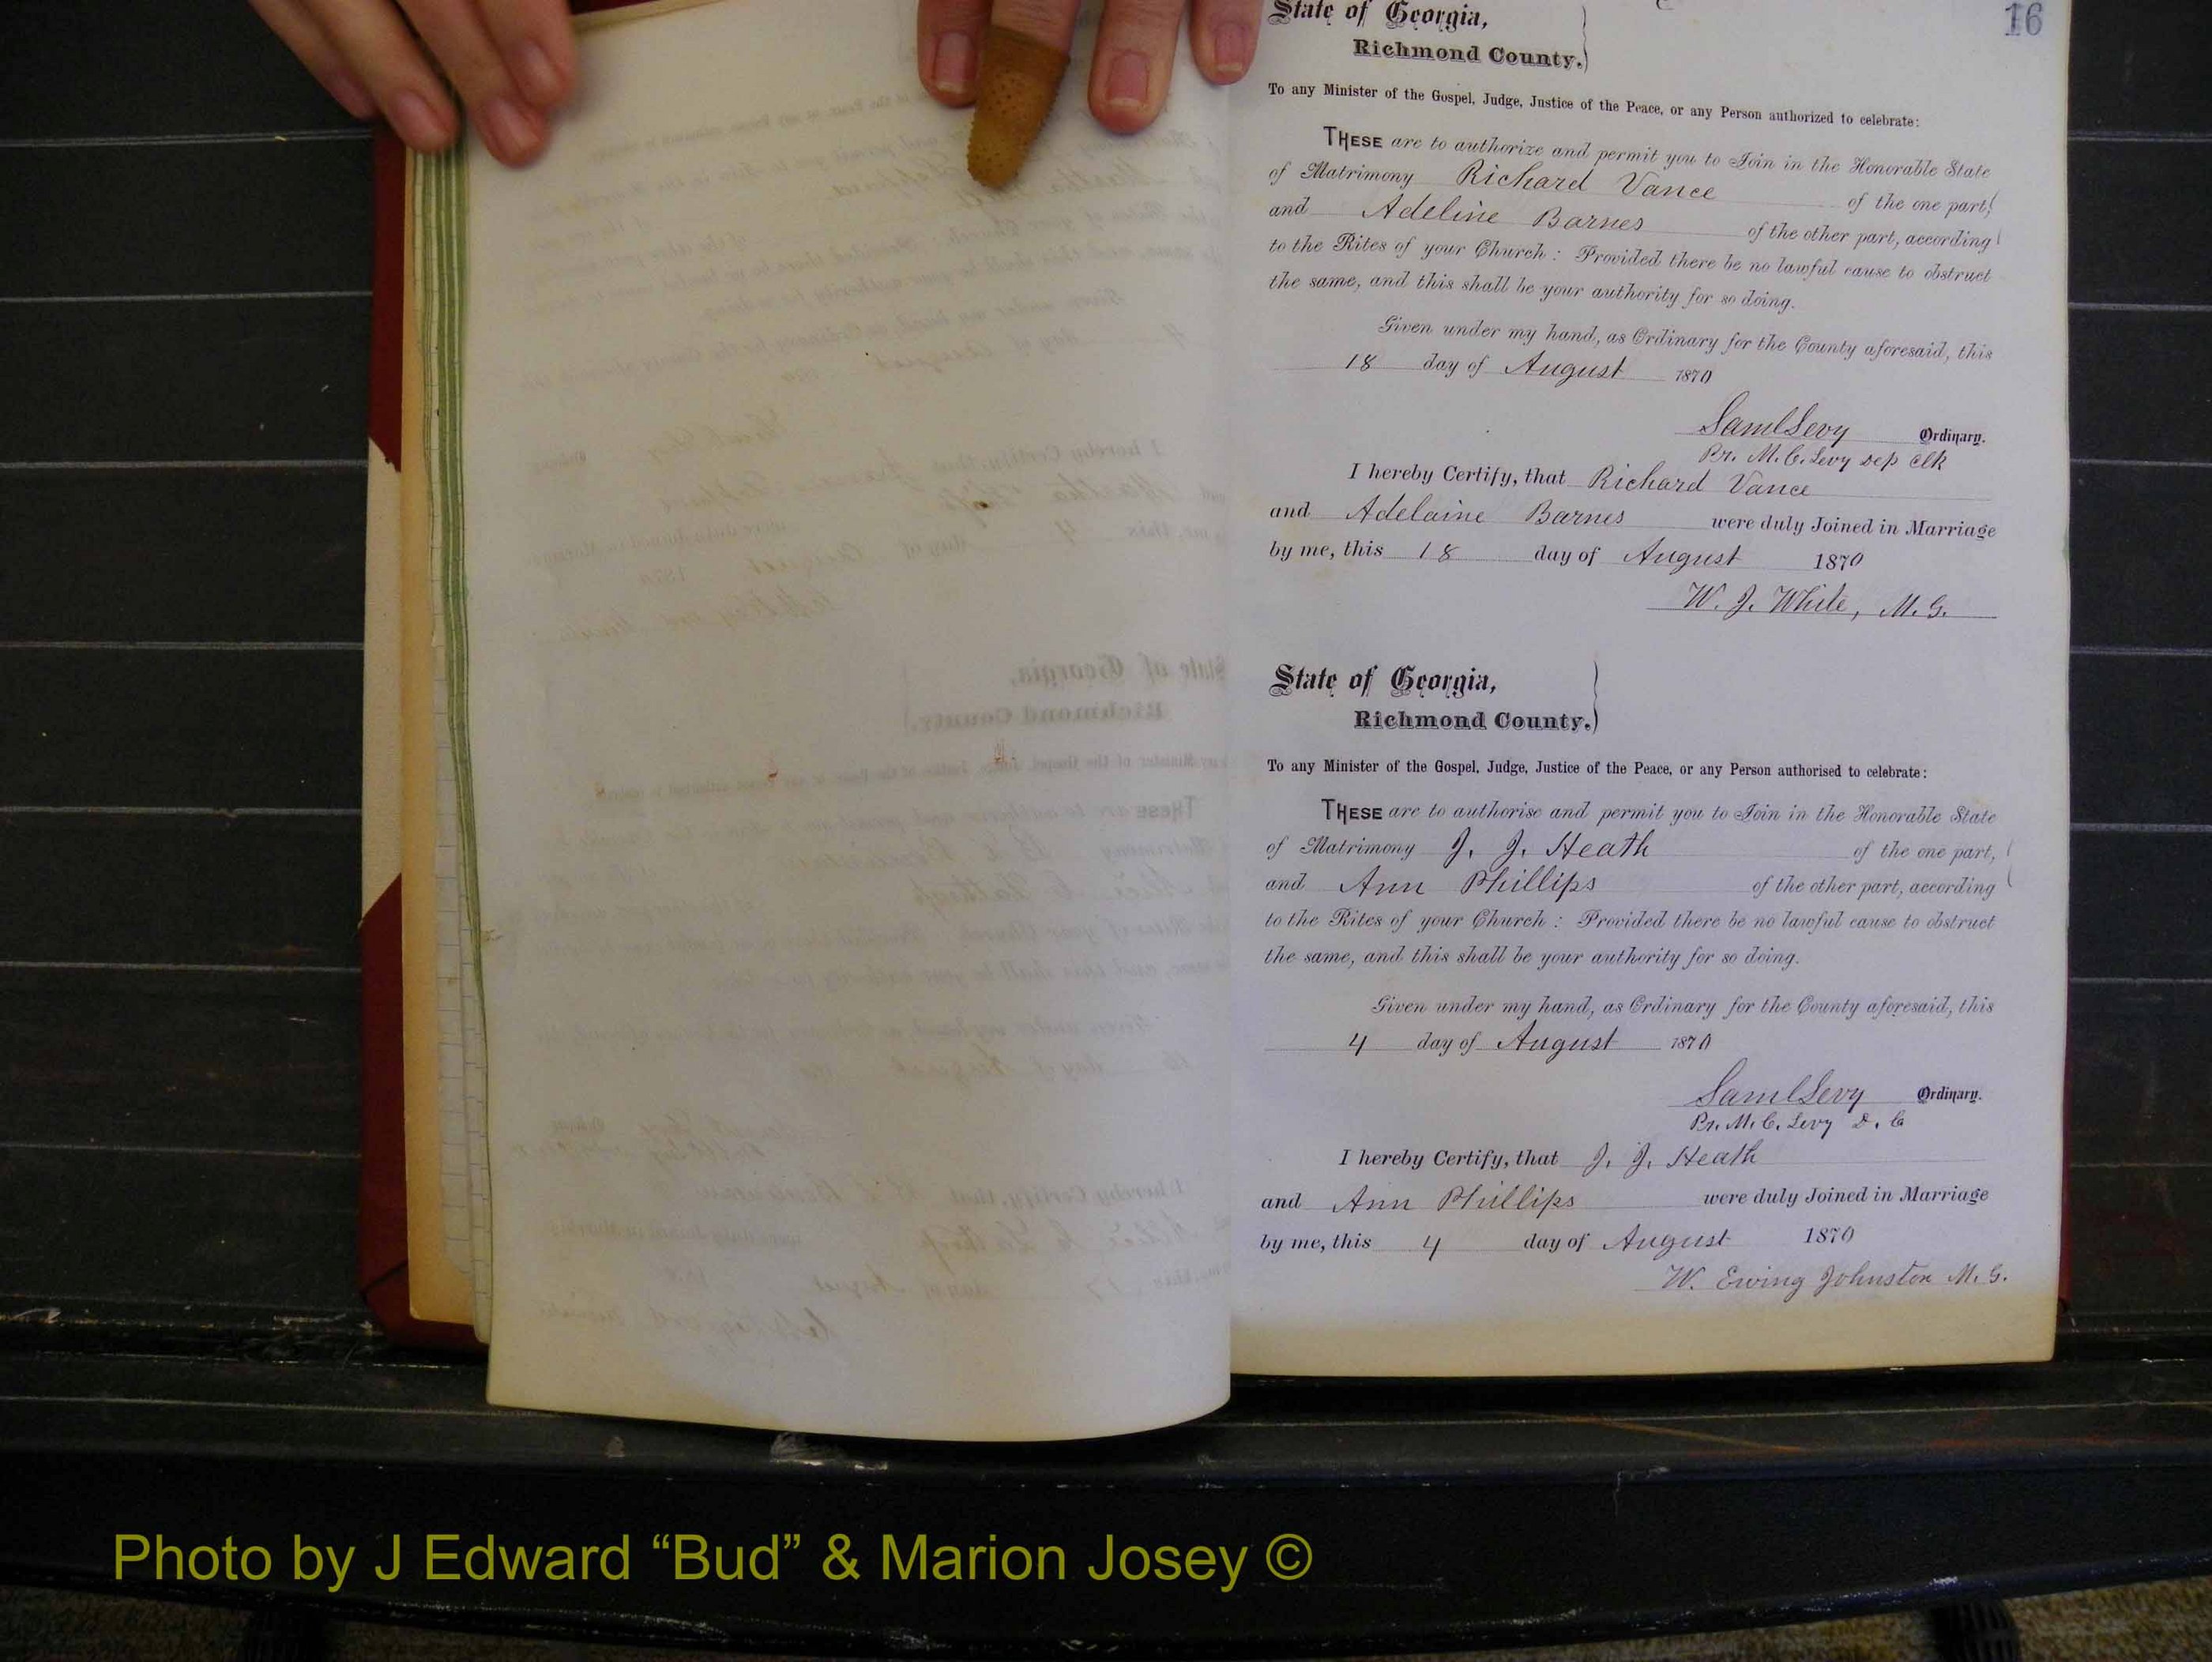 16
State of Georgia,
Richmond County.
To any Minister of the Gospel, Judge, Justice of the Peace, or any Person authorized to celebrate:
THESE are to authorize and permit you to Join in the Honorable State
of Matrimony Richard Vance of the one part,
and Adeline Barnes of the other part, according
to the Rites of your Church: Provided there be no lawful cause to obstruct
the same, and this shall be your authority for so doing.
Given under my hand, as Ordinary for the County aforesaid, this
18 day of August 1870
Saml Levy Ordinary.
Pr. M. C. Levy Dep Clk
I hereby Certify, that Richard Vance
and Adelaine Barnes were duly Joined in Marriage
by me, this 18 day of August 1870
W. J. White, M. G.
State of Georgia,
Richmond County.
To any Minister of the Gospel, Judge, Justice of the Peace, or any Person authorised to celebrate:
THESE are to authorise and permit you to Join in the Honorable State
of Matrimony J. J. Heath of the one part,
and Ann Phillips of the other part, according
to the Rites of your Church: Provided there be no lawful cause to obstruct
the same, and this shall be your authority for so doing.
Given under my hand, as Ordinary for the County aforesaid, this
4 day of August 1870
Saml Levy Ordinary.
Pr. M. C. Levy D. C
I hereby Certify, that J. J. Heath
and Ann Phillips were duly Joined in Marriage
by me, this 4 day of August 1870
W. Ewing Johnston M. G.
Photo by J Edward “Bud” & Marion Josey ©